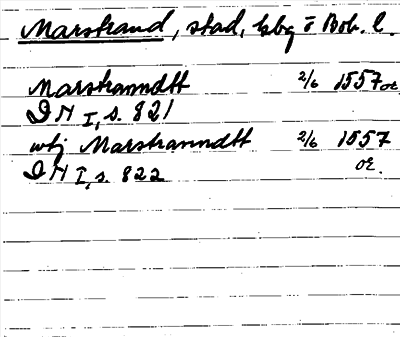 Marstrand, stad, kbg i Boh. l.
Marstranndtt 2/6 1557 or.
DN I, s. 821
utj Marstranndtt 2/6 1557
DN I, s. 822 or.